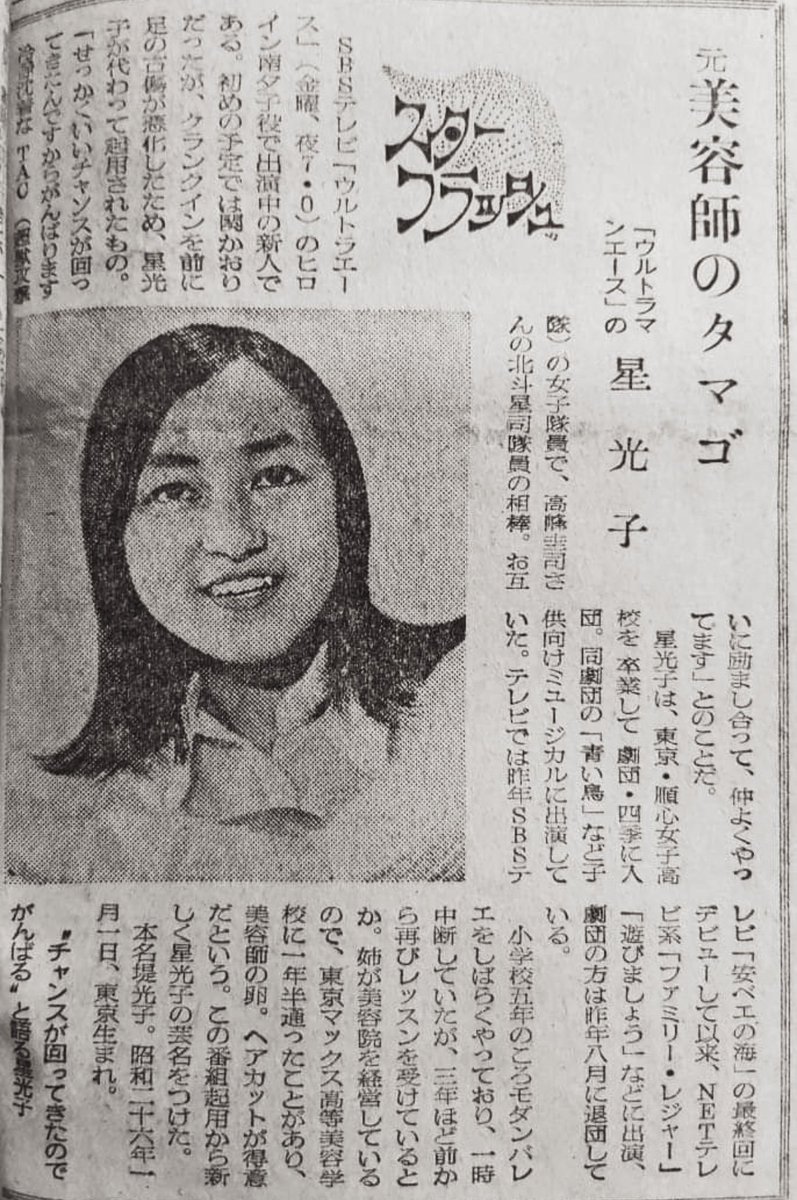 元 美容師のタマゴ
「ウルトラマ
ンエース」の
星光子
スター
フラッシュ
SBSテレビ「ウルトラエー
ス」（金曜、夜7・0）のヒロ
イン南夕子役で出演中の新人で
ある。初めの予定では関かおり
だったが、クランクインを前に
足の古傷が悪化したため、星光
子が代わって起用されたもの。
「せっかくいいチャンスが回っ
てきたんですからがんばります
冷静沈着なTAC（超獣攻撃
隊）の女子隊員で、高峰圭司さ
んの北斗星司隊員の相棒。お互
いに励まし合って、仲よくやっ
てます」とのことだ。
星光子は、東京・順心女子高
校を卒業して劇団・四季に入
団。同劇団の「青い鳥」など子
供向けミュージカルに出演して
いた。テレビでは昨年SBSテ
レビ「安ベエの海」の最終回に
デビューして以来、NETテレ
ビ系「ファミリー・レジャー」
「遊びましょう」などに出演、
劇団の方は昨年八月に退団して
いる。
小学校五年のころモダンバレ
エをしばらくやっており、一時
中断していたが、三年ほど前か
ら再びレッスンを受けていると
か。姉が美容院を経営している
ので、東京マックス高等美容学
校に一年半通ったことがあり、
美容師の卵。ヘアカットが得意
だという。この番組起用から新
しく星光子の芸名をつけた。
本名堤光子。昭和二十六年一
月一日、東京生まれ。
〝チャンスが回ってきたので
がんばる〟と語る星光子